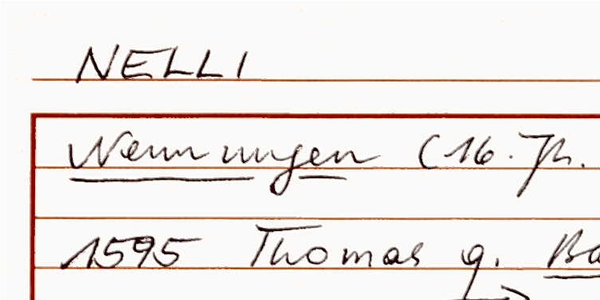 NELLI
Nennungen (16. Jh.
1595 Thomas q. Ba